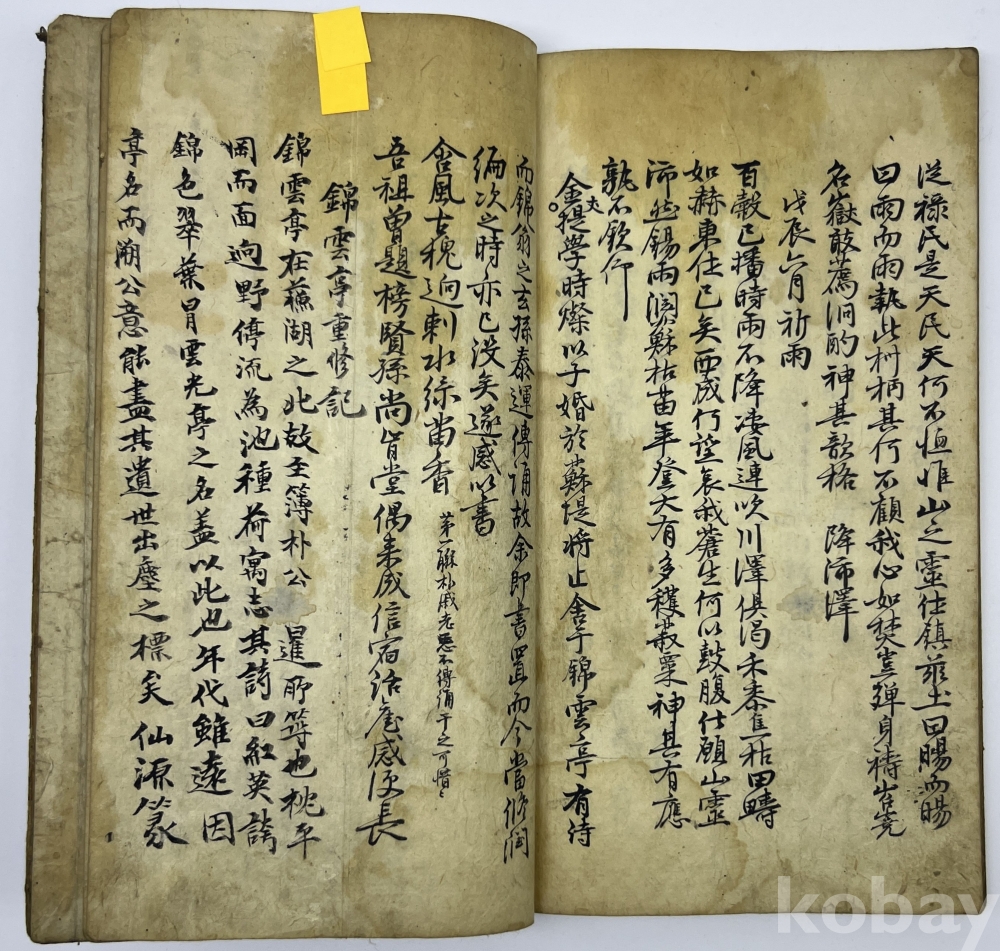 從祿民是天民天何不恤惟山之靈仕鎮玆土曰暘而暘
曰雨而雨執此柯柄其何不顧我心如焚豈殫身禱岧嶢
名嶽敢薦泂酌神其歆格 降沛澤
戊辰六月祈雨
百穀已播時雨不降凄風連吹川澤俱渴禾黍焦枯田疇
如赫東仕已矣西成何望哀我蒼生何以鼓腹仕願山靈
沛然錫雨潤穌枯苗年登大有多穫菽粟神其有應
孰不欽仰
金提學時燦以子婚於蘇堤將止舍于錦雲亭有詩
而錦翁之玄孫泰運傳誦故余卽書置而今當修潤
編次之時亦已沒矣遂感以書
含風古槐迥刺水綠苗香 第一聯朴戚老悉不傳誦于之可惜々
吾祖曾題榜賢孫尚肯堂偶來成信宿話舊感便長
錦雲亭重修記
錦雲亭在蘇湖之北故主簿朴公 暹所築也桃平
岡而面逈野傅流爲池種荷寓志其詩曰紅英謝
錦色翠葉冒雲光亭之名盖以此也年代雖遠因
亭名而溯公意能盡其遺世出塵之標矣仙源篆